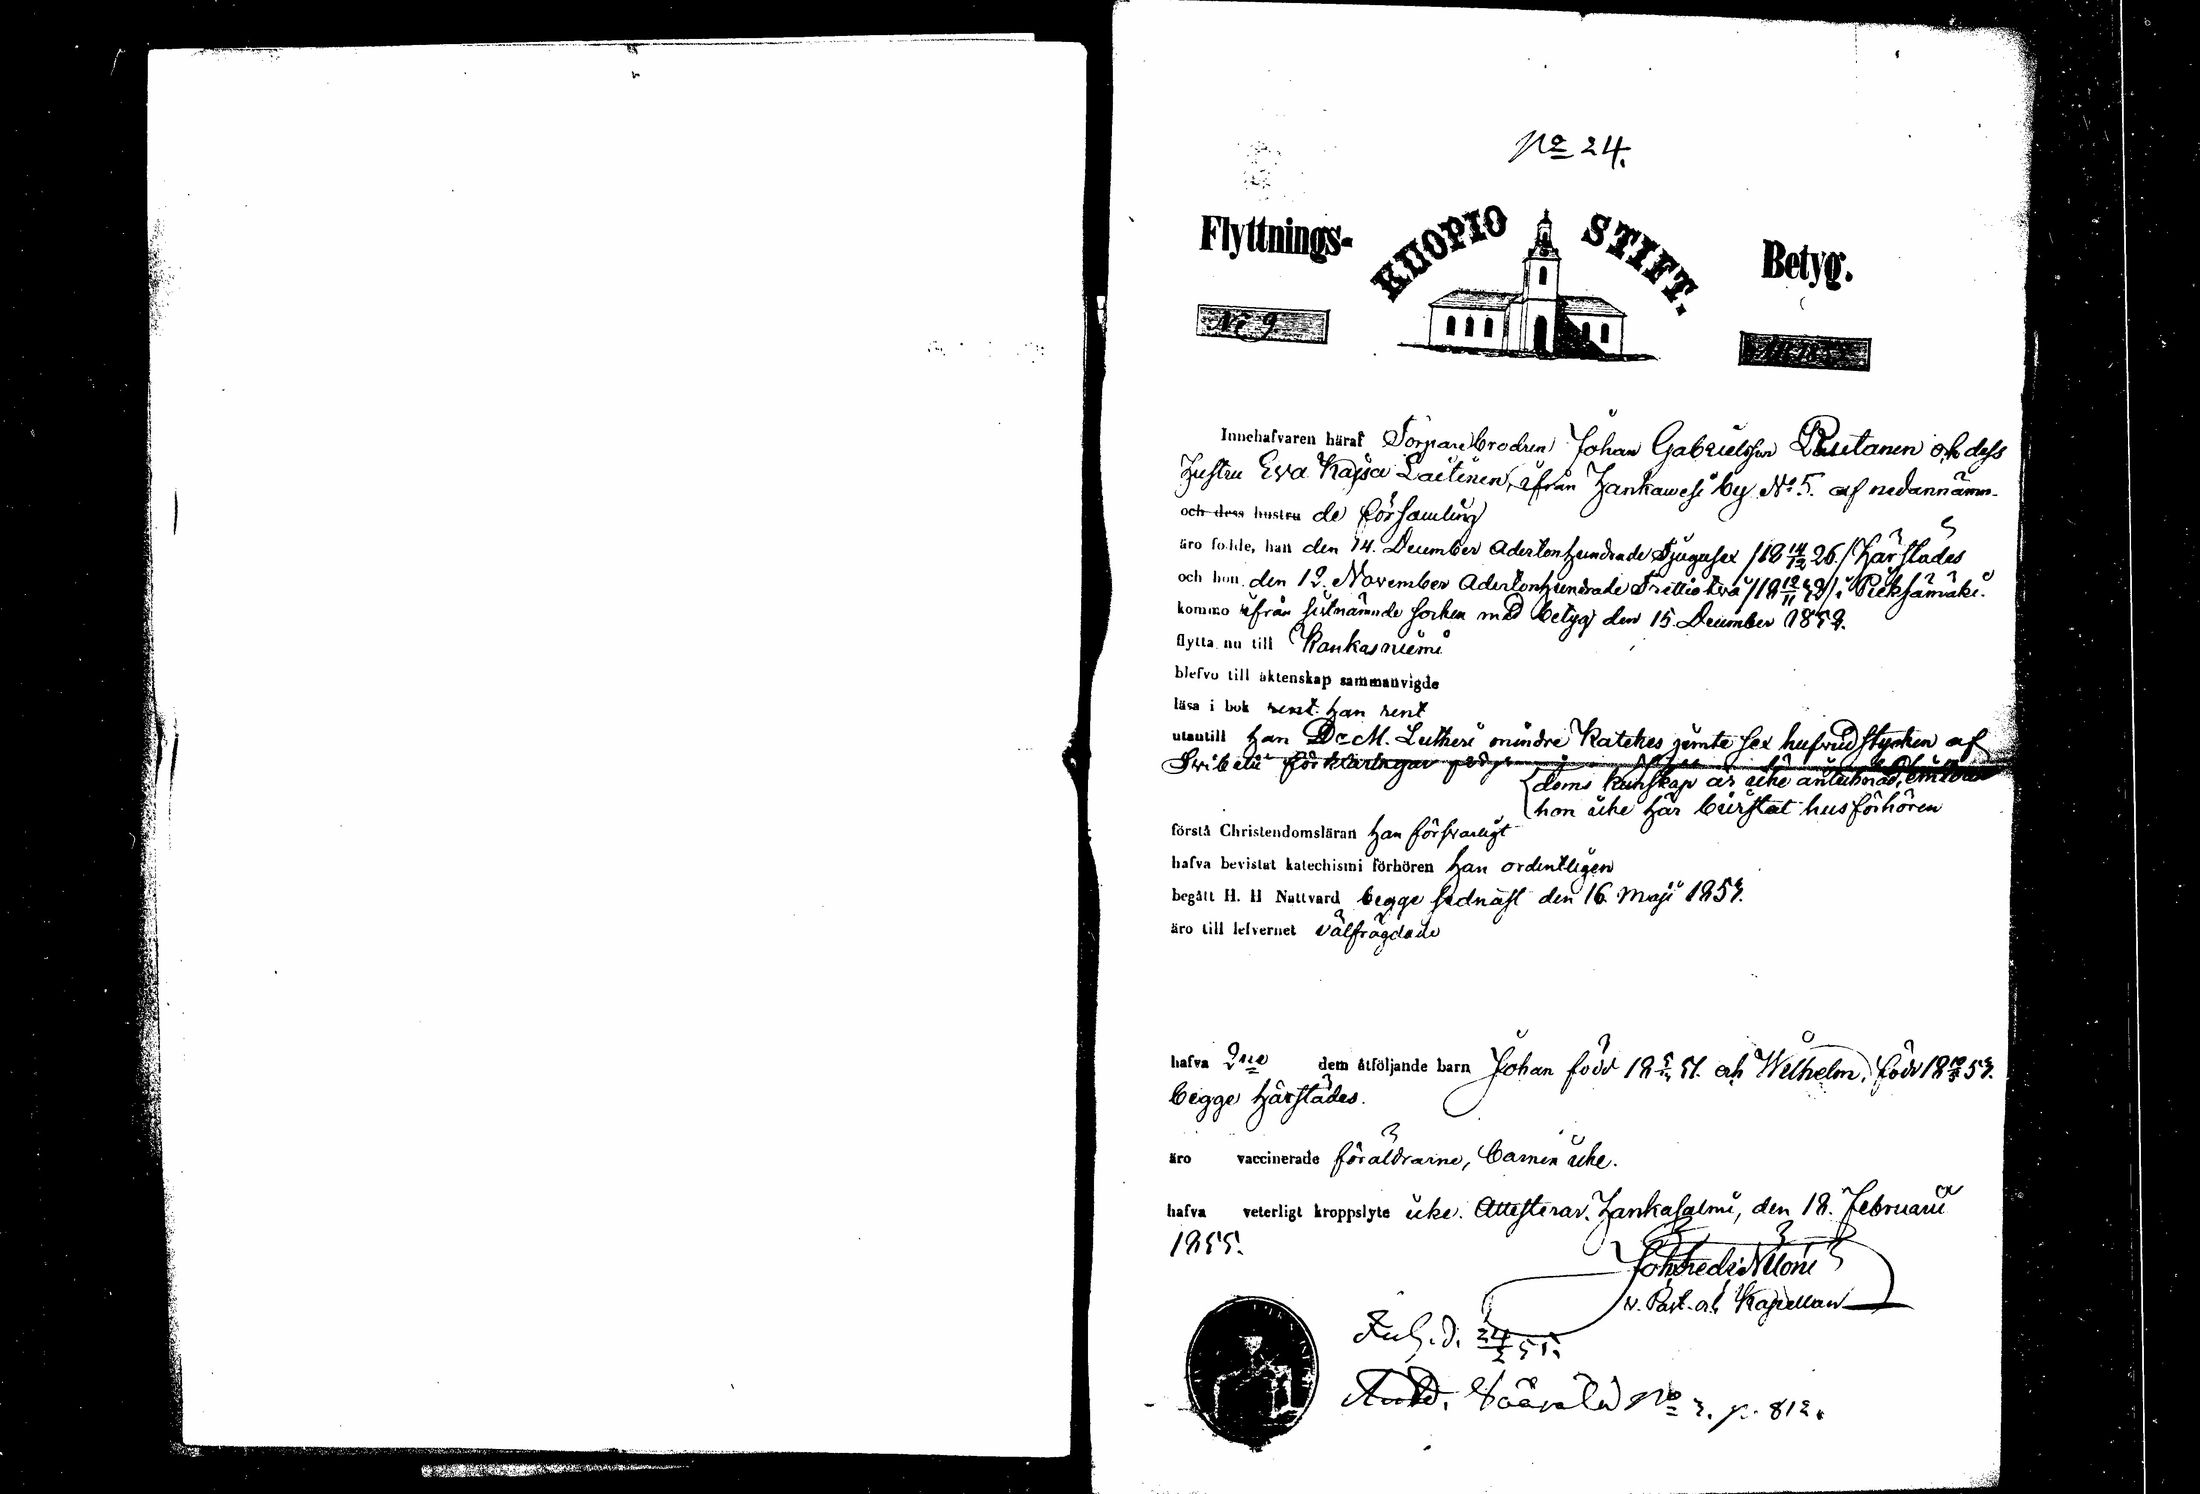 No 24.
Flyttnings- KUOPIO STIFT. Betyg.
No 9.
Innehafvaren häraf Torpare brodren Johan Gabrielsson Pasitanen och dess
hustru Eva Kajsa Laitinen, ifrån Hankavesi by No 5. af nedannämn-
och dess hustru de församling
äro födde, han den 14. December Adertonhundrade Tjugusex /18 14/12 26./ härstädes
och hon den 12. November Adertonhundrade Trettiotvå /18 12/11 32/ i Pieksämäki.
komne ifrån sistnämnde socken med betyg den 15. December 1852.
flytta nu till Kankasniemi
blefvo till äktenskap sammanvigde
läsa i bok rent. han rent
utantill han Dr M. Lutheri mindre Katekes jemte sex hufvudstycken af
Svibelii förklaringar
doms kunskap är icke antecknad, emedan
hon icke här bevistat husförhören
förstå Christendomsläran han försvarligt
hafva bevistat katechismi förhören han ordentligen
begått H. H Nattvard begge sednast den 16. Maji 1854.
äro till lefvernet välfrägdade
hafva 2ne dem åtföljande barn Johan född 18 51. och Wilhelm, född 18 53.
begge härstädes.
äro vaccinerade föräldrarne, barnen icke.
hafva veterligt kroppslyte icke. Attesterar. Hankasalmi, den 18. Februarii
1855.
v. Past. och Kapellan
Inl. d. 24/2 55.
No 3. p. 812.